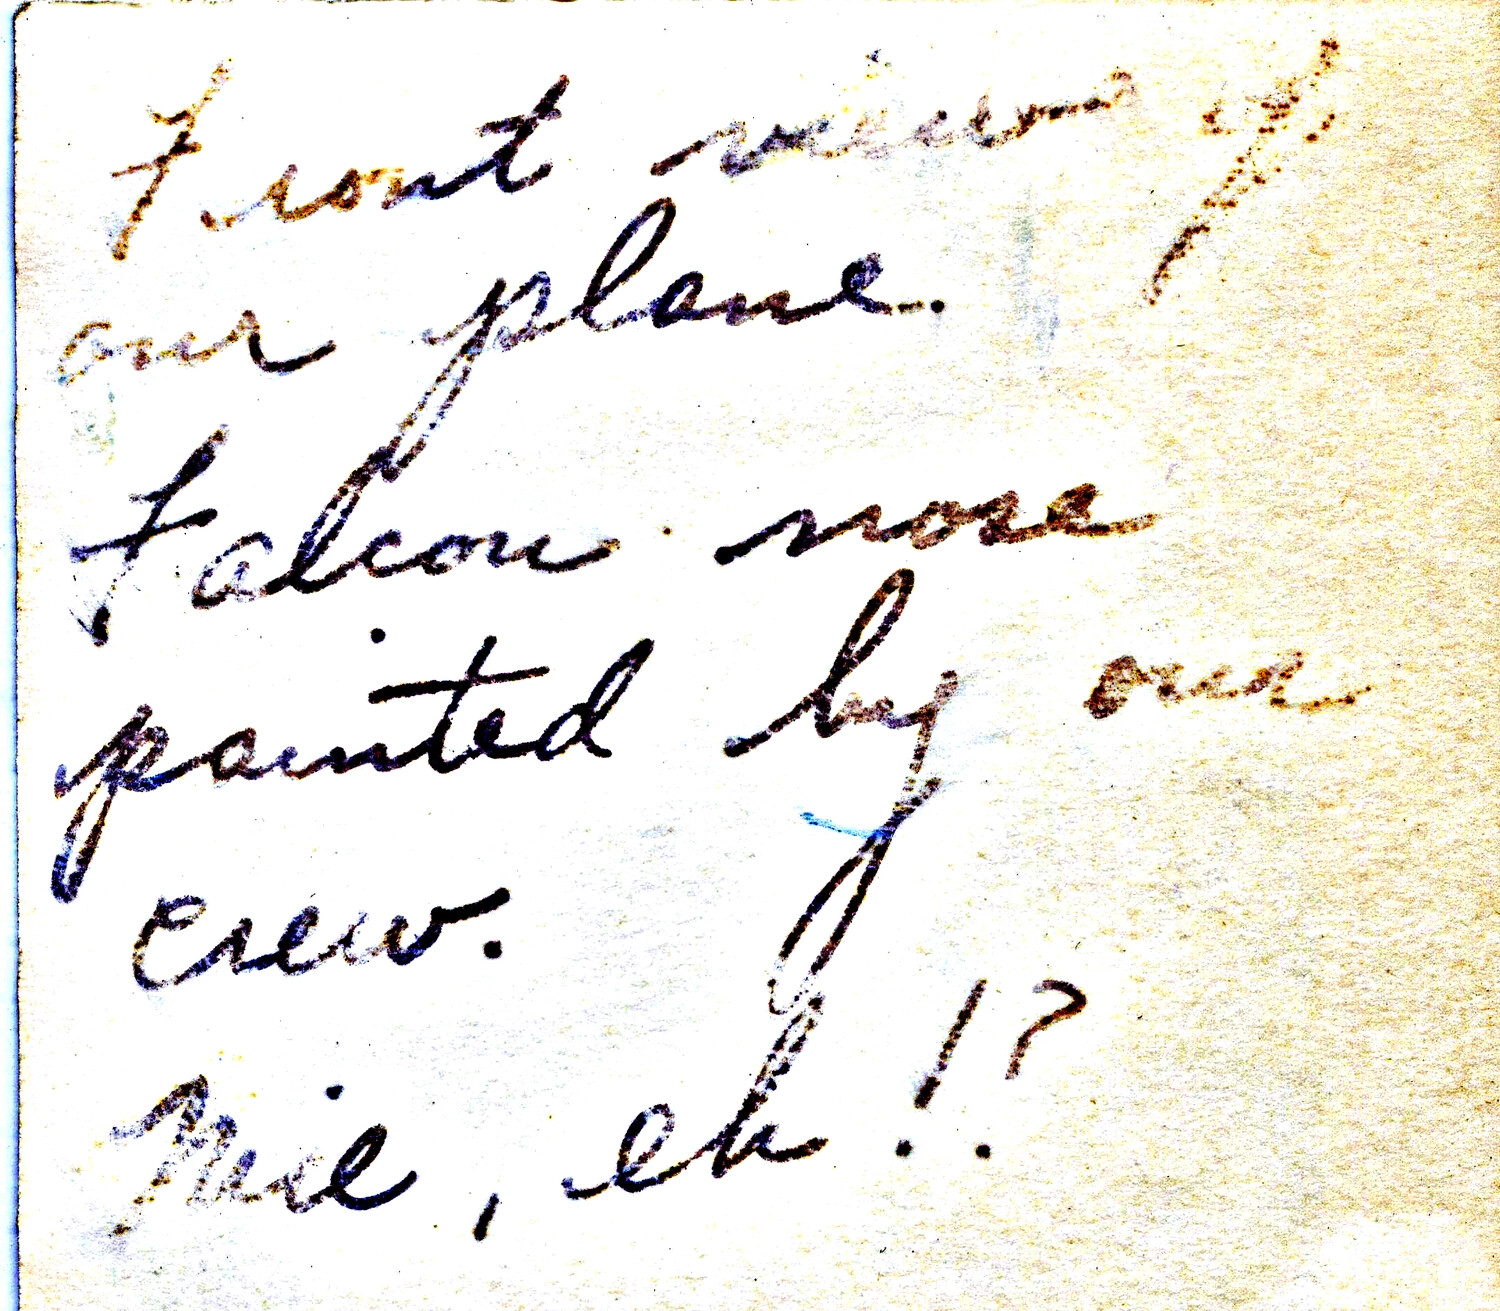 Front view of
our plane.
Falcon nose
painted by our
crew.
Nice, eh!?